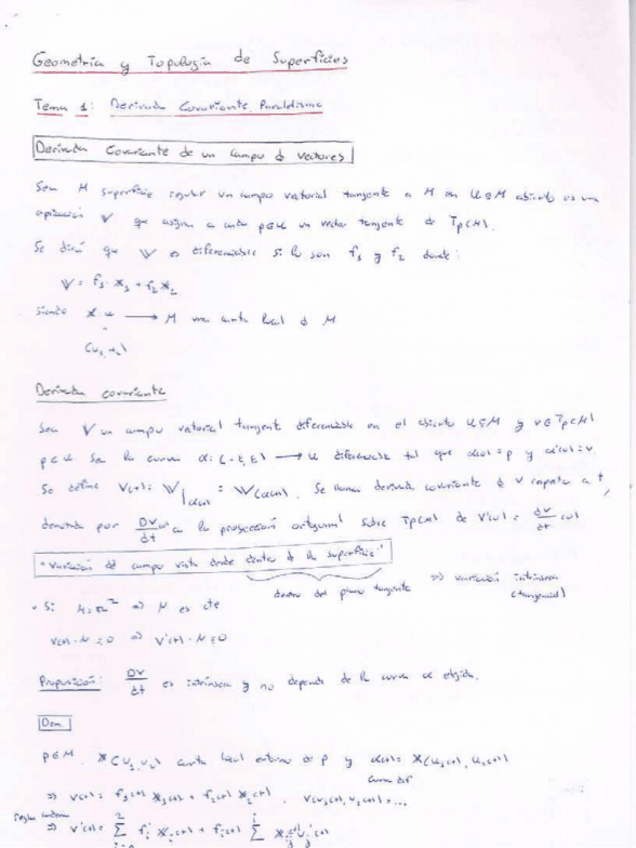 Geometría y Topología de Superficies
Tema 1: Derivada Covariante. Paralelismo
Derivada Covariante de un campo de vectores
Sea M superficie regular un campo vectorial tangente a M en U⊆M abierto es una
aplicación V que asigna a cada p∈U un vector tangente de Tp(M).
Se dirá que V es diferenciable si lo son f₁ y f₂ donde:
V = f₁·X₁ + f₂X₂
siendo X: U → M una carta local de M
Derivada covariante
Sea V un campo vectorial tangente diferenciable en el abierto U⊆M y v∈Tp(M)
p∈U. Sea la curva α: (-ε,ε) → U diferenciable tal que α(0)=p y α'(0)=v.
Se define V(t) = V|α(t) = V(α(t)). Se llama derivada covariante de V respecto a t,
denotada por DV/dt (0) a la proyección ortogonal sobre Tp(M) de V'(0) = dV/dt (0)
"Variación del campo vista desde dentro de la superficie"
dentro del plano tangente ⇒ variación intrínseca
(tangencial)
Si M=ℝ² ⇒ N es cte
V(t)·N=0 ⇒ V'(t)·N=0
Proposición: DV/dt es intrínseca y no depende de la curva α elegida.
Dem
p∈M, X(u₁,u₂) carta local entorno de p y α(t) = X(u₁(t), u₂(t))
curva dif
⇒ V(t) = f₁(t) X₁(t) + f₂(t) X₂(t),
regla cadena